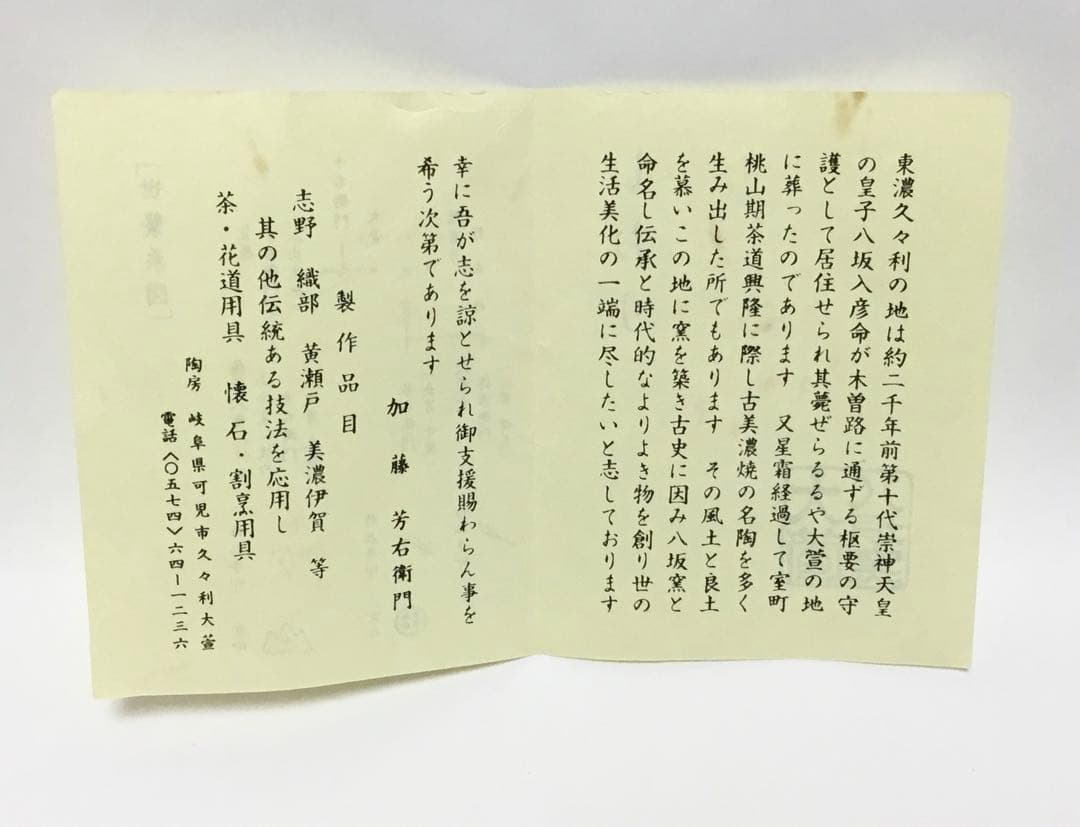 東濃久々利の地は約二千年前第十代崇神天皇
の皇子八坂入彦命が木曽路に通ずる枢要の守
護として居住せられ其薨ぜらるるや大萱の地
に葬ったのであります 又星霜経過して室町
桃山期茶道興隆に際し古美濃焼の名陶を多く
生み出した所でもあります その風土と良土
を慕いこの地に窯を築き古史に因み八坂窯と
命名し伝承と時代的なよりよき物を創り世の
生活美化の一端に尽したいと志しております
幸に吾が志を諒とせられ御支援賜わらん事を
希う次第であります
加藤芳右衛門
製作品目
志野 織部 黄瀬戸 美濃伊賀 等
其の他伝統ある技法を応用し
茶・花道用具 懐石・割烹用具
陶房 岐阜県可児市久々利大萱
電話〈〇五七四〉六四ー一二三六
「世襲系図」